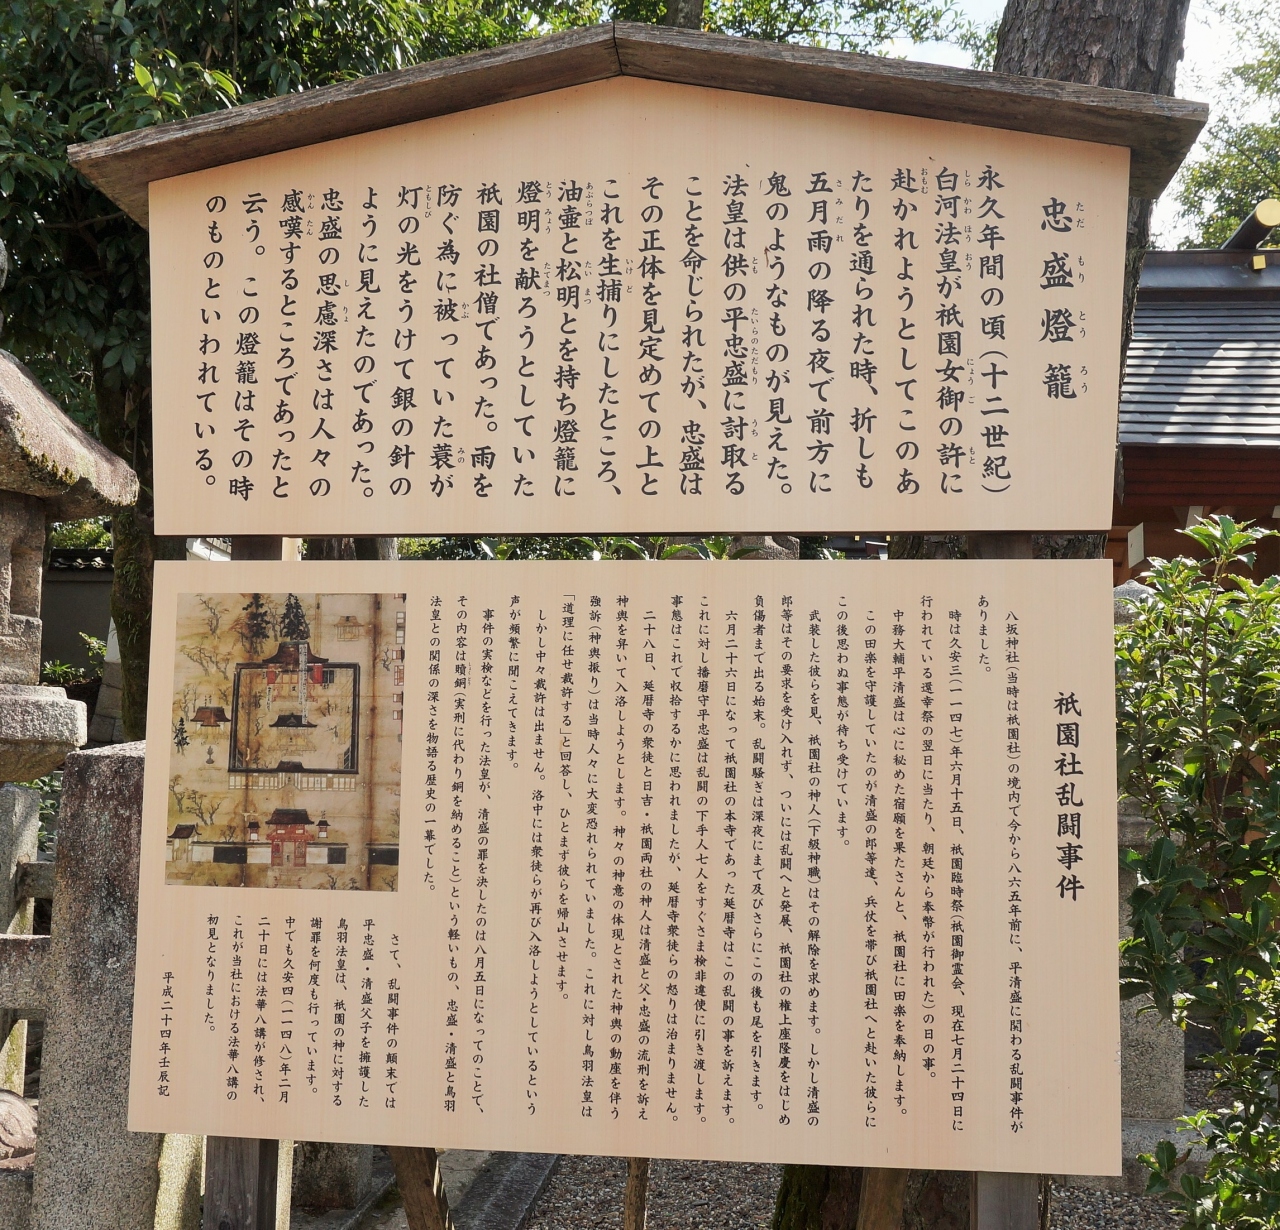 忠盛燈籠
永久年間の頃(十二世紀)
白河法皇が祇園女御の許に
赴かれようとしてこのあ
たりを通られた時、折しも
五月雨の降る夜で前方に
鬼のようなものが見えた。
法皇は供の平忠盛に討取る
ことを命じられたが、忠盛は
その正体を見定めての上と
これを生捕りにしたところ、
油壷と松明とを持ち燈籠に
燈明を献ろうとしていた
祇園の社僧であった。雨を
防ぐ為に被っていた蓑が
灯の光をうけて銀の針の
ように見えたのであった。
忠盛の思慮深さは人々の
感嘆するところであったと
云う。この燈籠はその時
のものといわれている。
祇園社乱闘事件
八坂神社(当時は祇園社)の境内で今から八六五年前に、平清盛に関わる乱闘事件が
ありました。
時は久安三(一一四七)年六月十五日、祇園臨時祭(祇園御霊会、現在七月二十四日に
行われている還幸祭の翌日に当たり、朝廷から奉幣が行われた)の日の事。
中務大輔平清盛は心に秘めた宿願を果たさんと、祇園社に田楽を奉納します。
この田楽を守護していたのが清盛の郎等達、兵仗を帯び祇園社へと赴いた彼らに
この後思わぬ事態が待ち受けています。
武装した彼らを見、祇園社の神人(下級神職)はその解除を求めます。しかし清盛の
郎等はその要求を受け入れず、ついには乱闘へと発展、祇園社の権上座隆慶をはじめ
負傷者まで出る始末。乱闘騒ぎは深夜にまで及びさらにこの後も尾を引きます。
六月二十六日になって祇園社の本寺であった延暦寺はこの乱闘の事を訴えます。
これに対し播磨守平忠盛は乱闘の下手人七人をすぐさま検非違使に引き渡します。
事態はこれで収拾するかに思われましたが、延暦寺衆徒らの怒りは治まりません。
二十八日、延暦寺の衆徒と日吉・祇園両社の神人は清盛と父・忠盛の流刑を訴え
神輿を舁いて入洛しようとします。神々の神意の体現とされた神輿の動座を伴う
強訴(神輿振り)は当時人々に大変恐れられていました。これに対し鳥羽法皇は
「道理に任せ裁許する」と回答し、ひとまず彼らを帰山させます。
しかし中々裁許は出ません。洛中には衆徒らが再び入洛しようとしているという
声が頻繁に聞こえてきます。
事件の実検などを行った法皇が、清盛の罪を決したのは八月五日になってのことで、
その内容は贖銅(実刑に代わり銅を納めること)という軽いもの、忠盛・清盛と鳥羽
法皇との関係の深さを物語る歴史の一幕でした。
さて、乱闘事件の顛末では
平忠盛・清盛父子を擁護した
鳥羽法皇は、祇園の神に対する
謝罪を何度も行っています。
中でも久安四(一一四八)年二月
二十日には法華八講が修され、
これが当社における法華八講の
初見となりました。
平成二十四年壬辰記